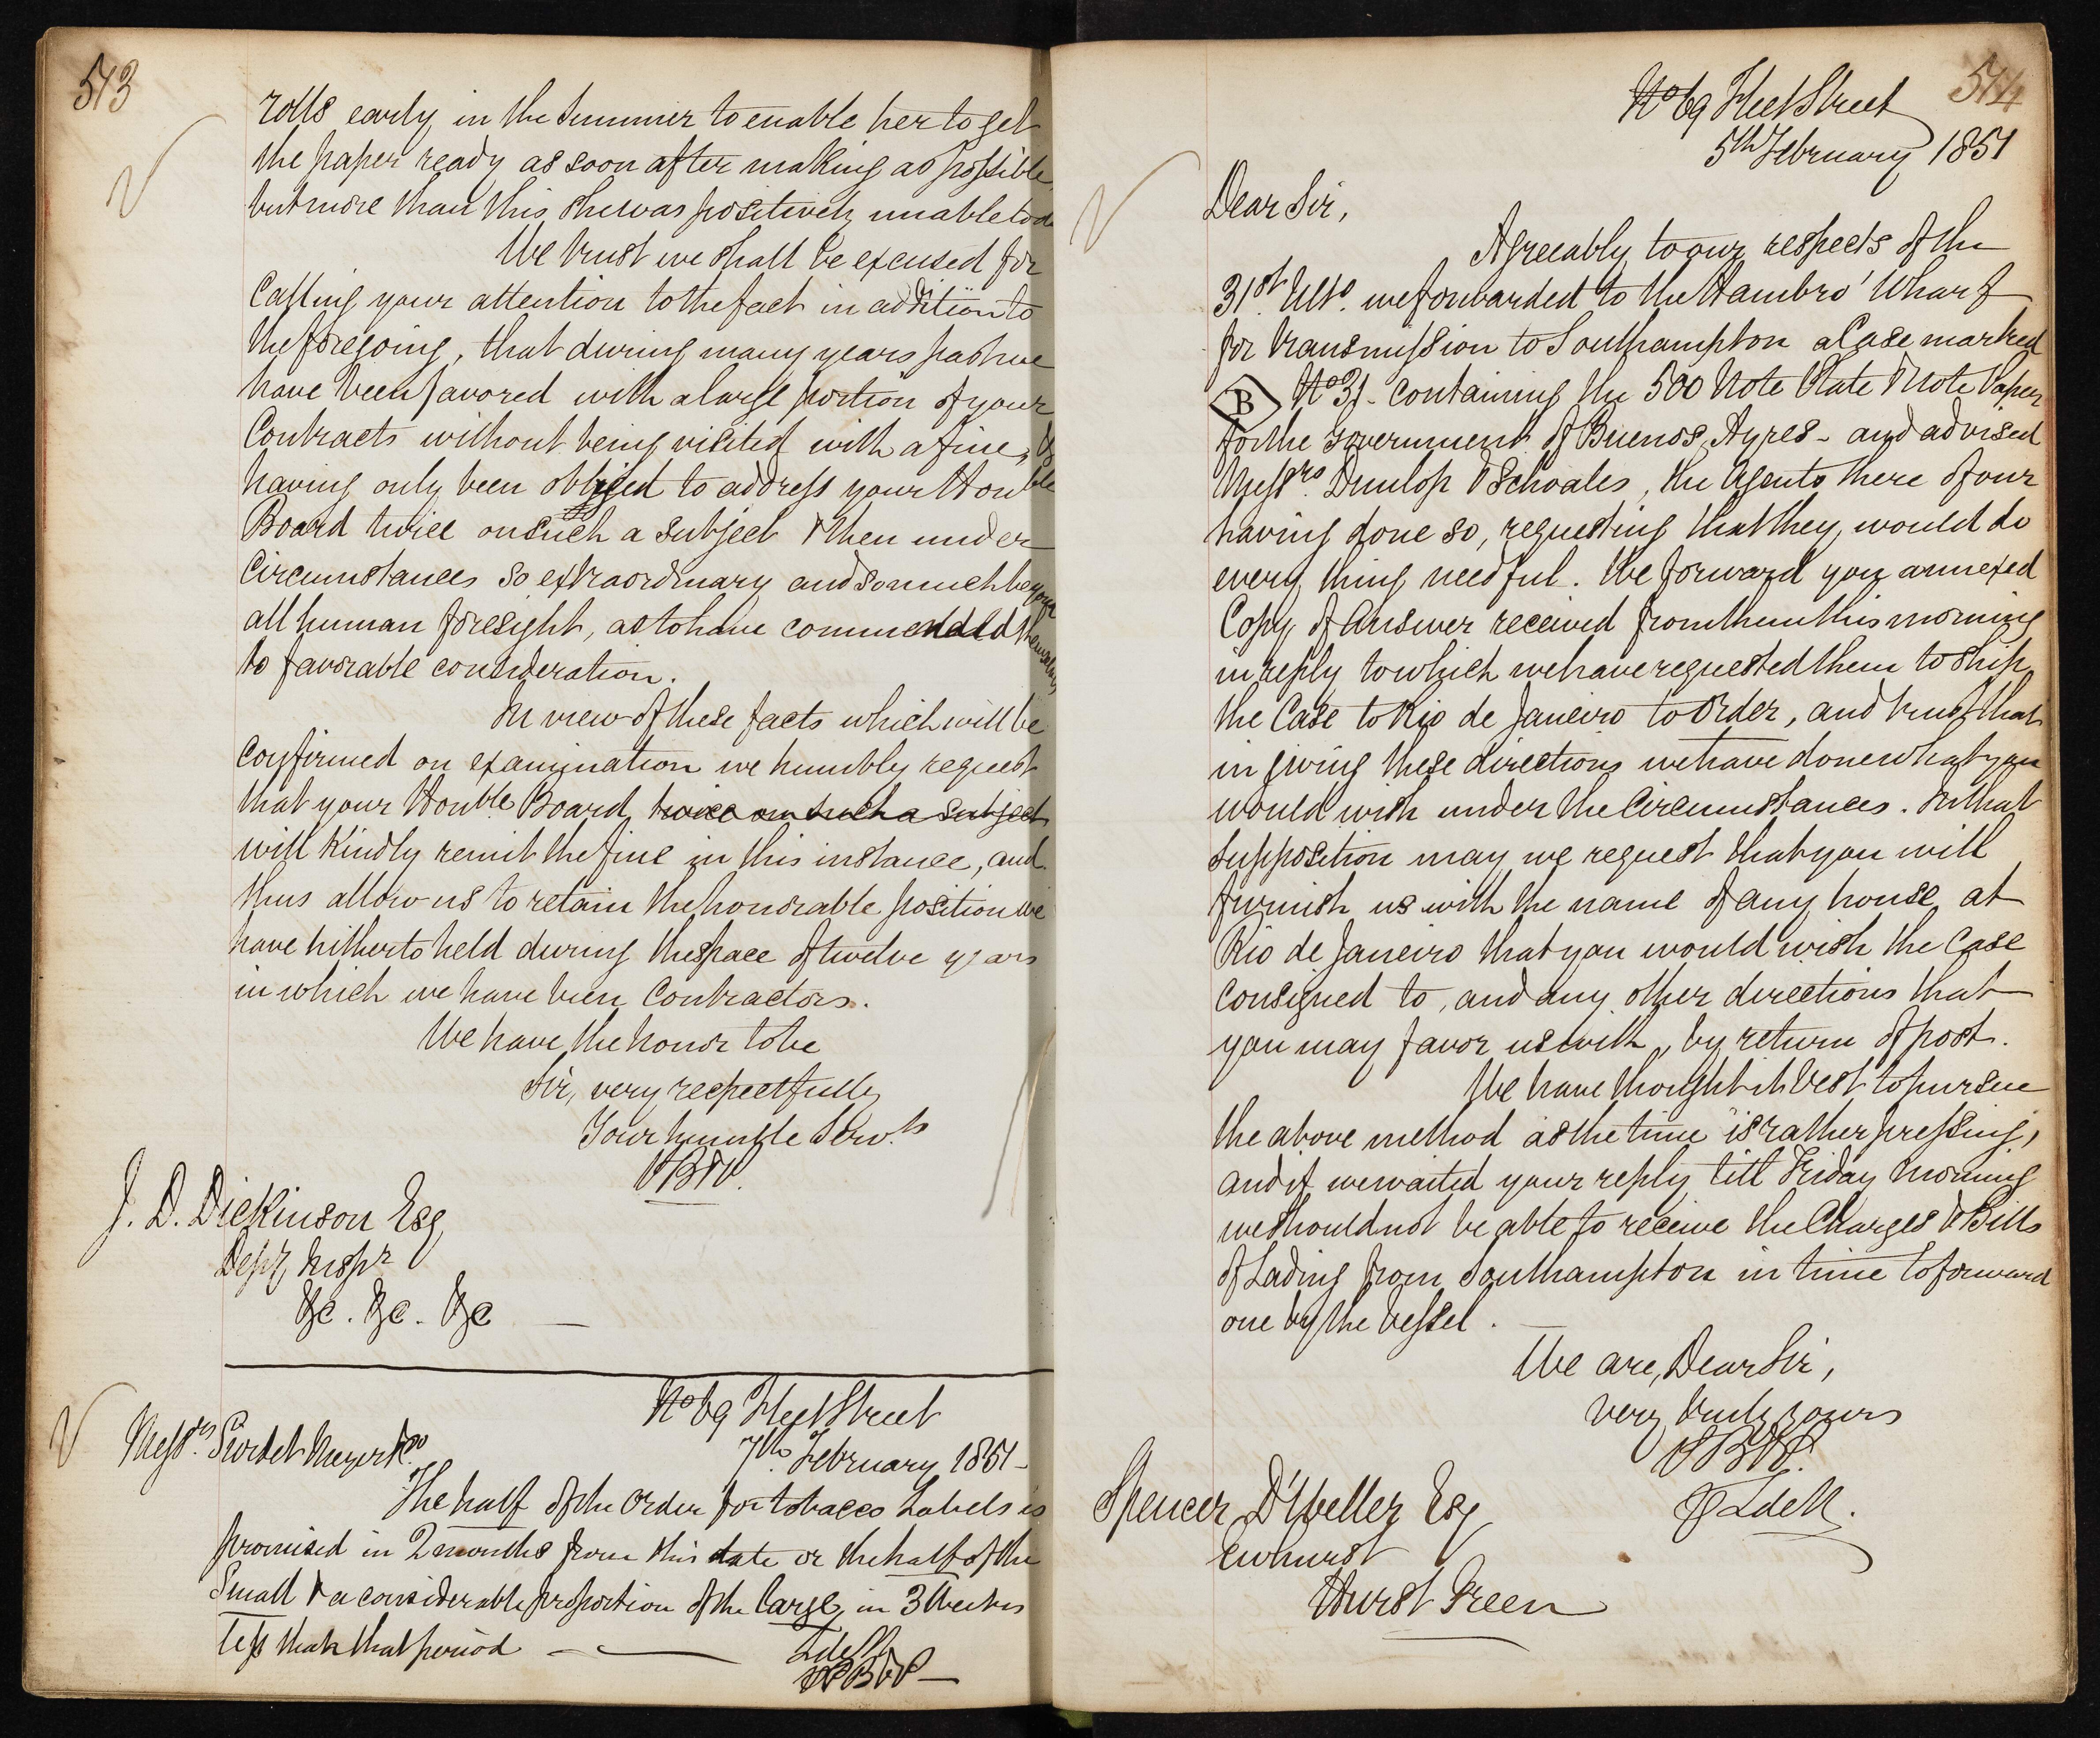 513
rolls early in the Summer to enable her to get
the paper ready as soon after making as possible
but more than this she was positively unable to do
We trust we shall be excused for
Calling your attention to the fact in addition to
the foregoing, that during many years past we
have been favored with a large portion of your
Contracts without being visited with a fine, &
having only been obliged to address your Honble
Board twice on such a subject & then under
Circumstances so extraordinary and so much beyond
all human foresight, as to have commended themselves
to favorable consideration.
In view of these facts which will be
Confirmed on examination we humbly request
that your Honble Board twice on such a subject
will Kindly remit the fine in this instance, and
thus allow us to retain the honorable position we
have hitherto held during the space of twelve years
in which we have been Contractors.
We have the honor to be
Sir, very respectfully
Your humble Servts
PB&P.
J. D. Dickinson Esq
Depy Inspr
&c. &c. &c
No 69 Fleet Street
7th February 1851
Messrs Piordet Meyer & Co
The half of the Order for tobacco Labels is
promised in 2 months from this date or the half of the
Small & a considerable proportion of the large in 3 Weeks
less than that period
PB&P
514
No 69 Fleet Street
5th February 1851
Dear Sir,
Agreeably to our respects of the
31st Ulto. we forwarded to the Hambro' Wharf
for transmission to Southampton a Case marked
B No 31 - Containing the 500 Note Plate & Note Paper
for the government of Buenos Ayres - and advised
Messrs Dunlop & Schoales, the Agents there of our
having done so, requesting that they would do
every thing needful. We forward you annexed
Copy of Answer received from them this morning
in reply to which we have requested them to ship
the Case to Rio de Janeiro to Order, and trust that
in giving these directions we have done what you
would wish under the Circumstances. In that
supposition may we request that you will
furnish us with the name of any house at
Rio de Janeiro that you would wish the Case
consigned to, and any other directions that
you may favor us with, by return of post.
We have thought it best to pursue
the above method as the time is rather pressing,
and if we waited your reply till Friday Morning
we should not be able to receive the Charges & Bills
of Lading from Southampton in time to forward
one by the Vessel.
We are, Dear Sir,
very truly yours
PB&P.
Spencer D'Weller Esq
Ewhurst
Hurst Green